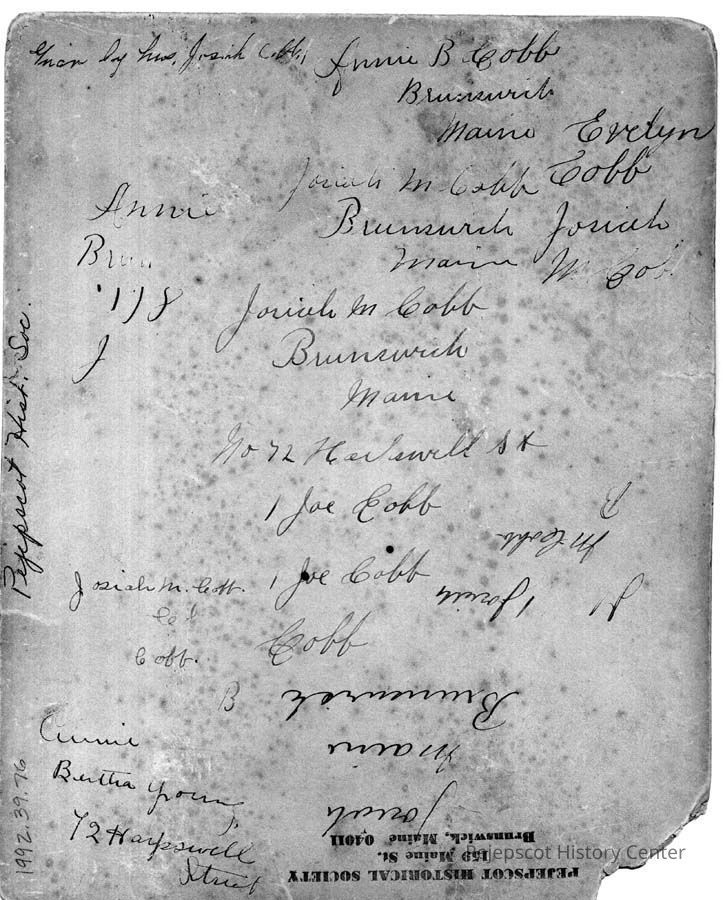 Given by Mrs. Josiah Cobb
Annie B Cobb
Brunswick
Maine
Evelyn
Cobb
Josiah M Cobb
Brunswick
Maine
Josiah
M Cob
Annie
Brun
J
Josiah M Cobb
Brunswick
Maine
No 72 Harpswell St
1 Joe Cobb
1 Joe Cobb
Cobb
Josiah M. Cobb.
Cobb.
B
B
M Cobb
1 Josiah
Brunswick
Maine
Josiah
Annie
Bertha Young
72 Harpswell
Street
Pejepscot Hist. Soc.
1992.39.76
PEJEPSCOT HISTORICAL SOCIETY
159 Maine St.
Brunswick, Maine 04011
Pejepscot History Center